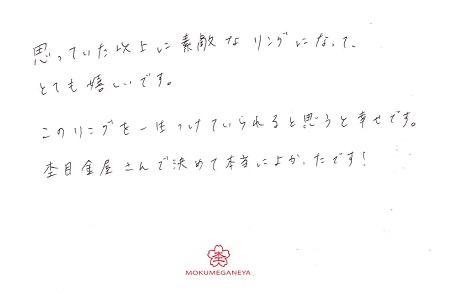 思っていた以上に素敵なリングになって、
とても嬉しいです。
このリングを一生つけていられると思うと幸せです。
杢目金屋さんで決めて本当によかったです！
杢
MOKUMEGANEYA